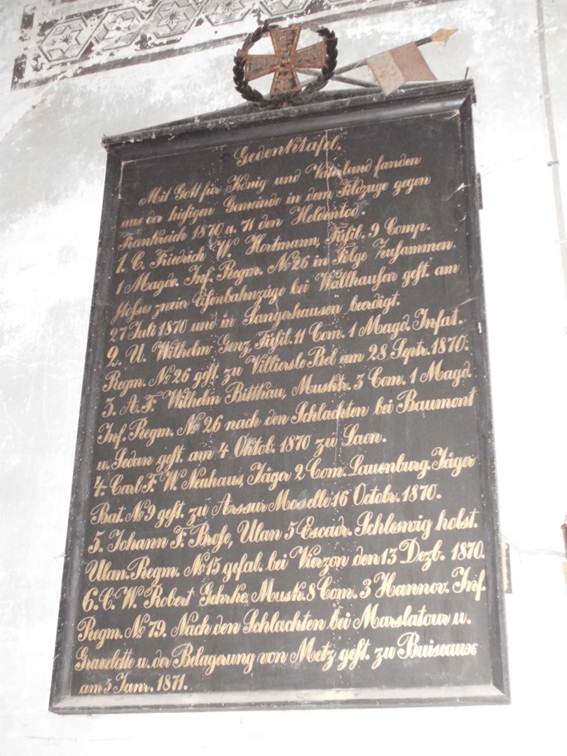 Gedenktafel.
Mit Gott für König und Vaterland fanden
aus der hiesigen Gemeinde in dem Feldzuge gegen
Frankreich 1870 u. 71 den Heldentod.
1. C. Friedrich W. Hortmann, Füsil. 9 Comp.
1 Magdr. Inf. Regm. No 26 in Folge Zusammen-
stoßes zweier Eisenbahnzüge bei Wallhausen gest. am
27 Juli 1870 und in Sangerhausen beerdigt.
2. U. Wilhelm Genz, Füsil. 11 Com. 1 Magd. Infat.
Regm. No 26 gest. zu Villiersle Bel am 28 Sptr. 1870.
3. A. F. Wilhelm Bitthau, Muskt. 3 Com. 1 Magd.
Inf. Regm. No 26 nach den Schlachten bei Baumont
u. Sedan gest. am 4 Oktob. 1870 zu Laon.
4. Carl F. W. Neuhaus, Jäger 2 Com. Lauenburg. Jäger
Bat. No 9 gest. zu Arssur Moselle 16 Octobr. 1870.
5. Johann F. Bose, Ulan 5 Escadr. Schleswig holst.
Ulan. Regm. No 15 gefal. bei Vierzon den 13 Dezb. 1870
6. C. W. Robert Gehrke, Musk. 8 Com. 3 Hannov. Inf.
Regm. No 79. Nach den Schlachten bei Marslatour u.
Gravelotte u. der Belagerung von Metz gest. zu
am 5 Janr. 1871.